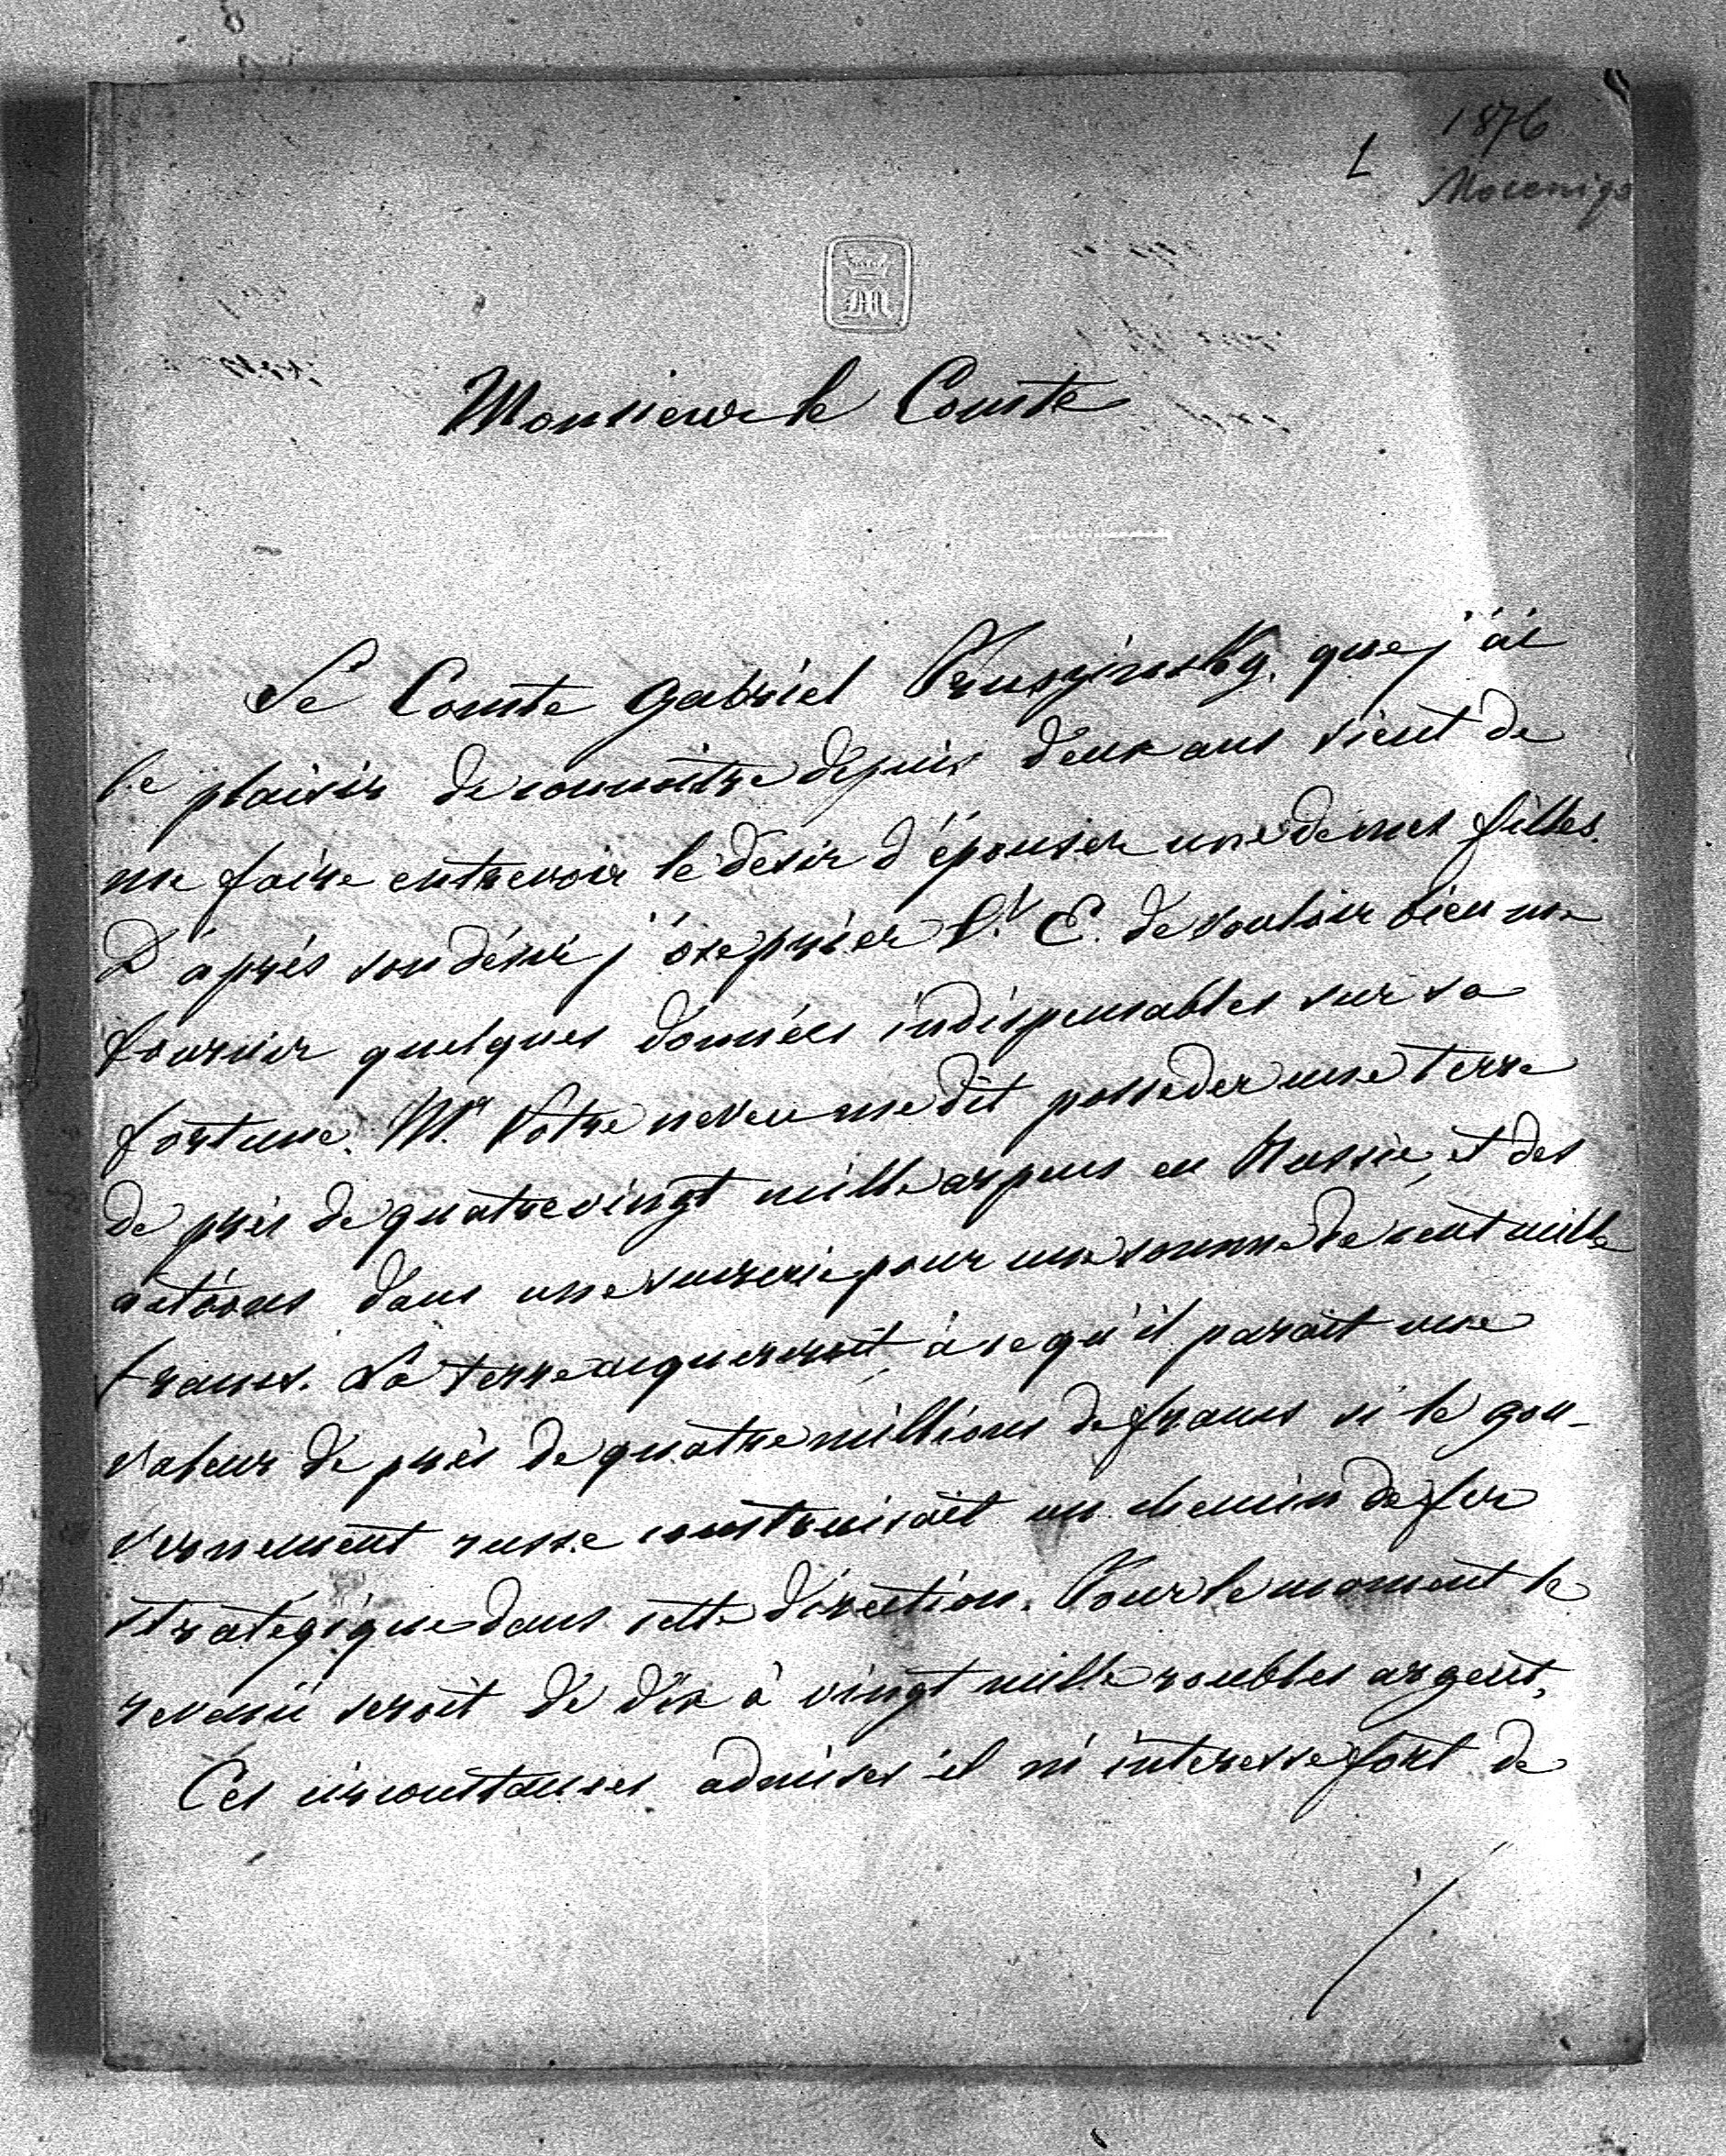 1876
L
Mocenigo
M
Monsieur le Comte
Le Comte Gabriel Pruszinsky, que j'ai
le plaisir de connoitre depuis deux ans vient de
me faire entrevoir le désir d'épouser une de mes filles.
D'après son désir j'ose prier V. E. de vouloir bien me
fournir quelques données indispensables sur sa
fortune. Mr. Votre neveu me dit posseder une terre
de près de quatrevingt mille arpens en Russie, et des
actions dans une sucrerie pour une somme de cent mille
francs. La terre acquerroit, à ce qu'il parait une
valeur de près de quatre millions de francs si le gou-
vernement russe construisait un chemin de fer
stratégique dans cette direction. Pour le moment le
revenu seroit de dix à vingt mille roubles argent.
Ces circonstances admises il m'interesse fort de